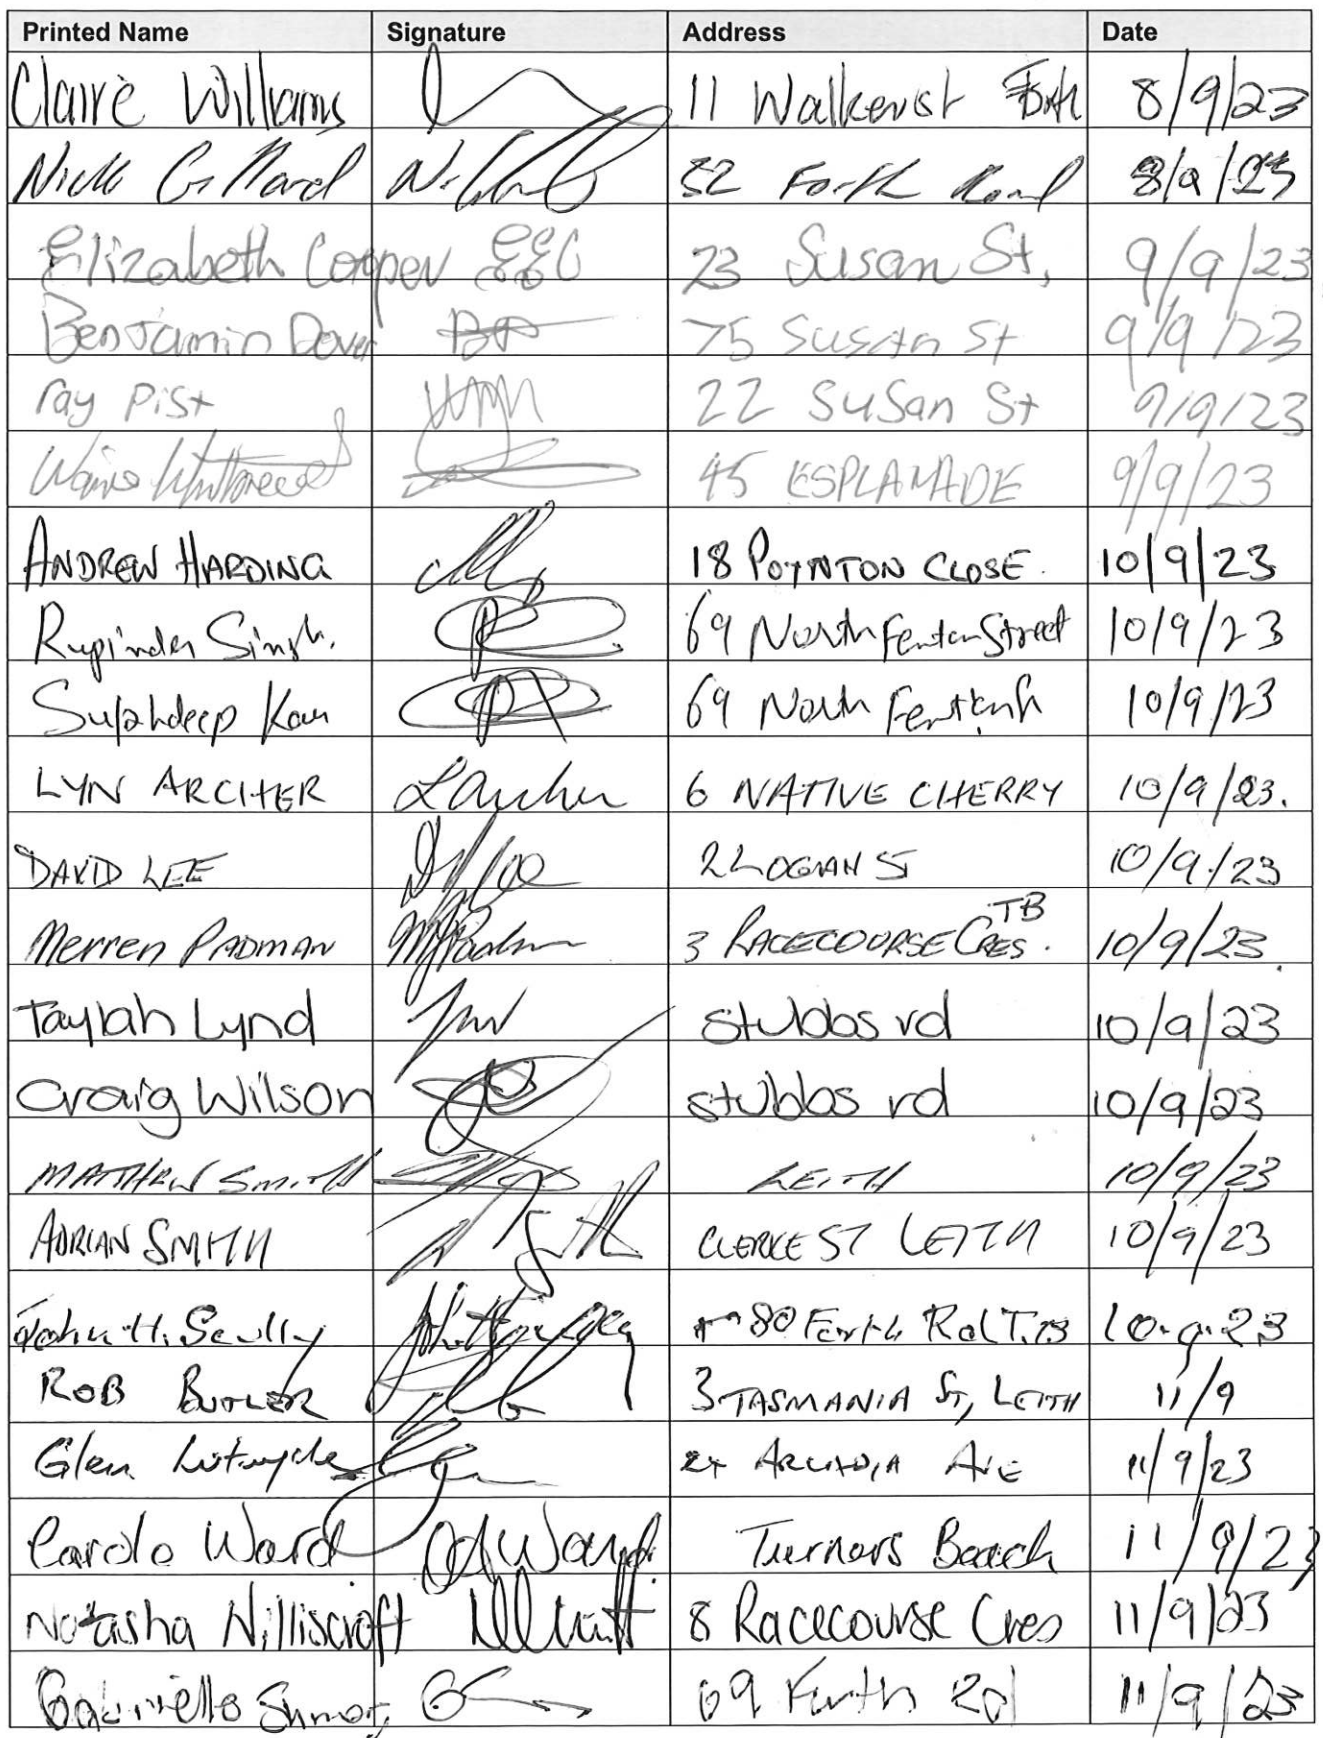 Printed Name Signature Address Date
Claire Williams 11 Walker st Forth 8/9/23
Nick Gillard 32 Forth Road 8/9/23
Elizabeth Cooper EEC 23 Susan St, 9/9/23
Benjamin Dover BD 75 Susan St 9/9/23
ray Pist 22 Susan St 9/9/23
45 ESPLANADE 9/9/23
ANDREW HARDING 18 POYNTON CLOSE. 10/9/23
Rupinder Singh. 69 North Fenton Street 10/9/23
69 North 10/9/23
LYN ARCHER LArcher 6 NATIVE CHERRY 10/9/23.
DAVID LEE 2 LOGAN ST 10/9/23
Merren PADMAN MPadman 3 RACECOURSE CRES. TB 10/9/23
Taylah Lynd stubbs rd 10/9/23
Craig Wilson stubbs rd 10/9/23
MATTHEW Smith LEITH 10/9/23
ADRIAN SMITH CLERKE ST LEITH 10/9/23
John H. Scully 80 Forth Rd T.B 10.9.23
ROB BUTLER 3 TASMANIA ST, LEITH 11/9
Glen 24 ARCADIA AVE 11/9/23
Carole Ward Ward Turners Beach 11/9/23
Natasha Nilliscroft 8 Racecourse Cres 11/9/23
Gabrielle 69 Forth Rd 11/9/23